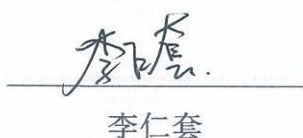 李仁套
李仁套